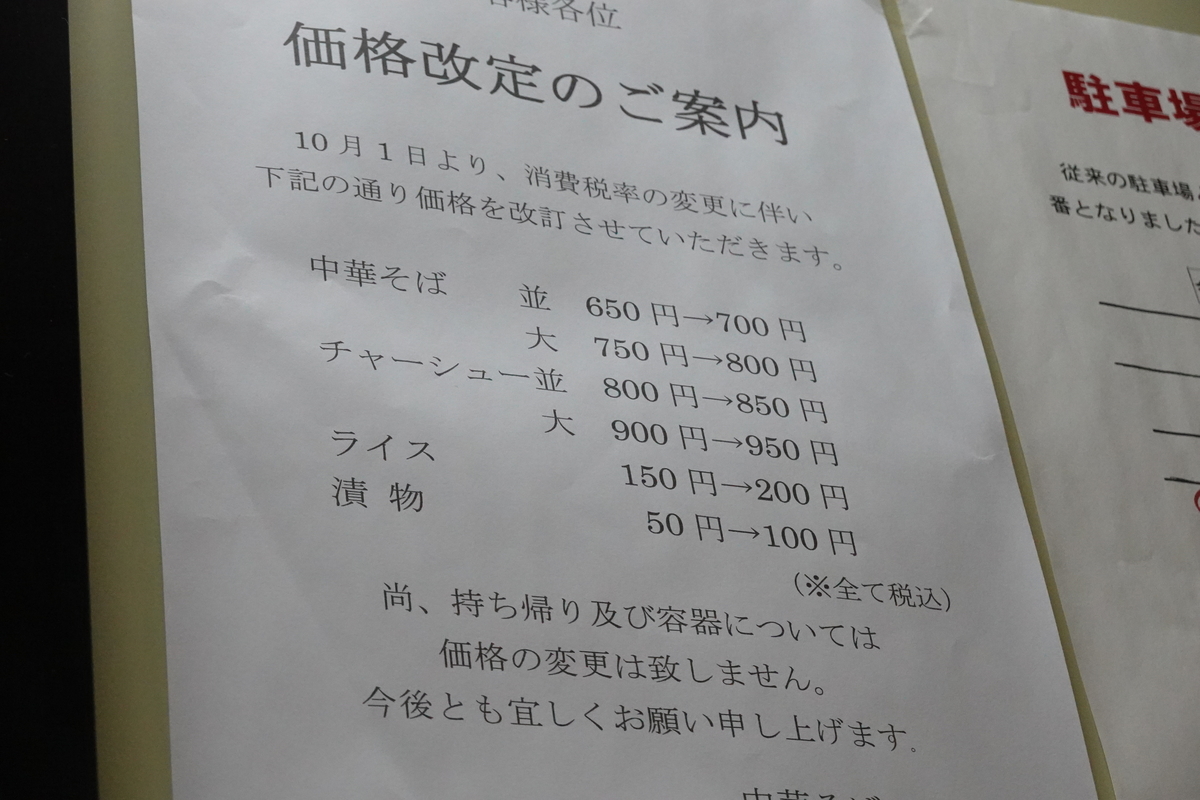 客様各位
価格改定のご案内
10月1日より、消費税率の変更に伴い
下記の通り価格を改訂させていただきます。
中華そば 並 650円→700円
大 750円→800円
チャーシュー並 800円→850円
大 900円→950円
ライス 150円→200円
漬 物 50円→100円
(※全て税込)
尚、持ち帰り及び容器については
価格の変更は致しません。
今後とも宜しくお願い申し上げます。
中華そば
駐車場
従来の駐車場
番となりました